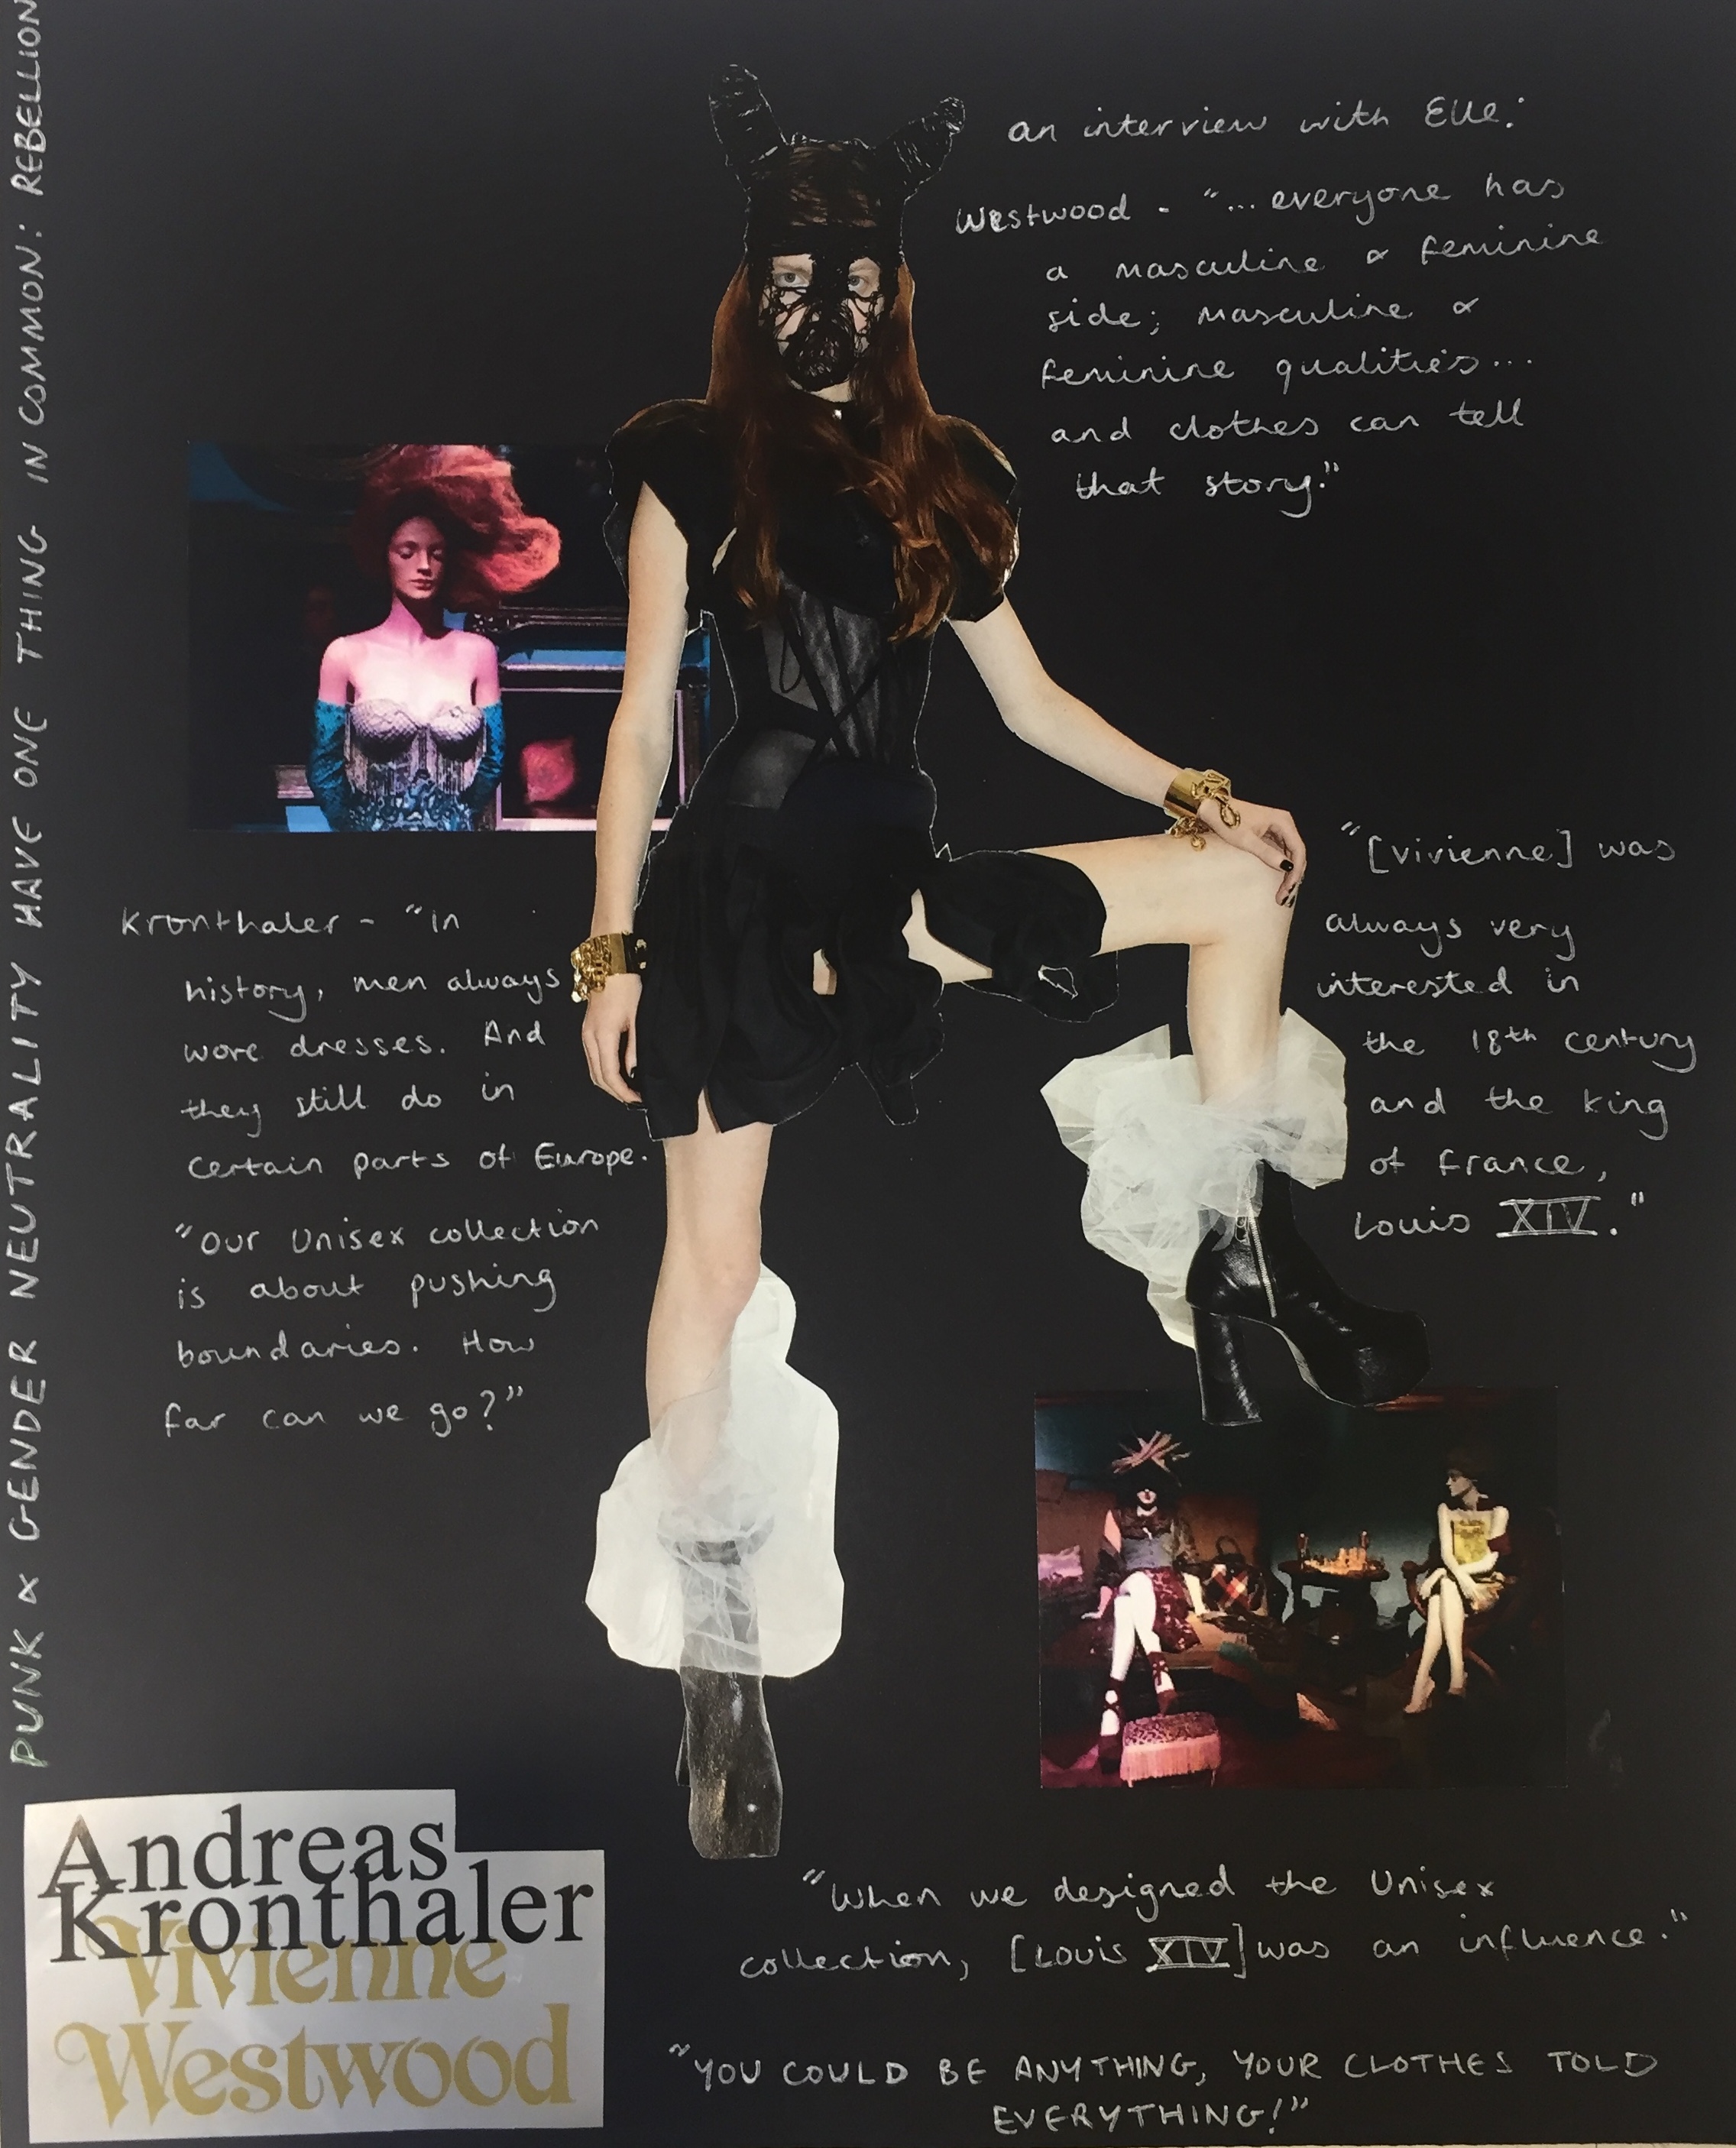 PUNK & GENDER NEUTRALITY HAVE ONE THING IN COMMON: REBELLION
an interview with Elle:
Westwood - "... everyone has
a masculine & feminine
side; masculine &
feminine qualities...
and clothes can tell
that story."
Kronthaler - "In
history, men always
wore dresses. And
they still do in
certain parts of Europe.
"Our Unisex collection
is about pushing
boundaries. How
far can we go?"
"[Vivienne] was
always very
interested in
the 18th century
and the king
of France,
Louis XIV."
Andreas
Kronthaler
Vivienne
Westwood
"When we designed the Unisex
collection, [Louis XIV] was an influence."
"YOU COULD BE ANYTHING, YOUR CLOTHES TOLD
EVERYTHING!"